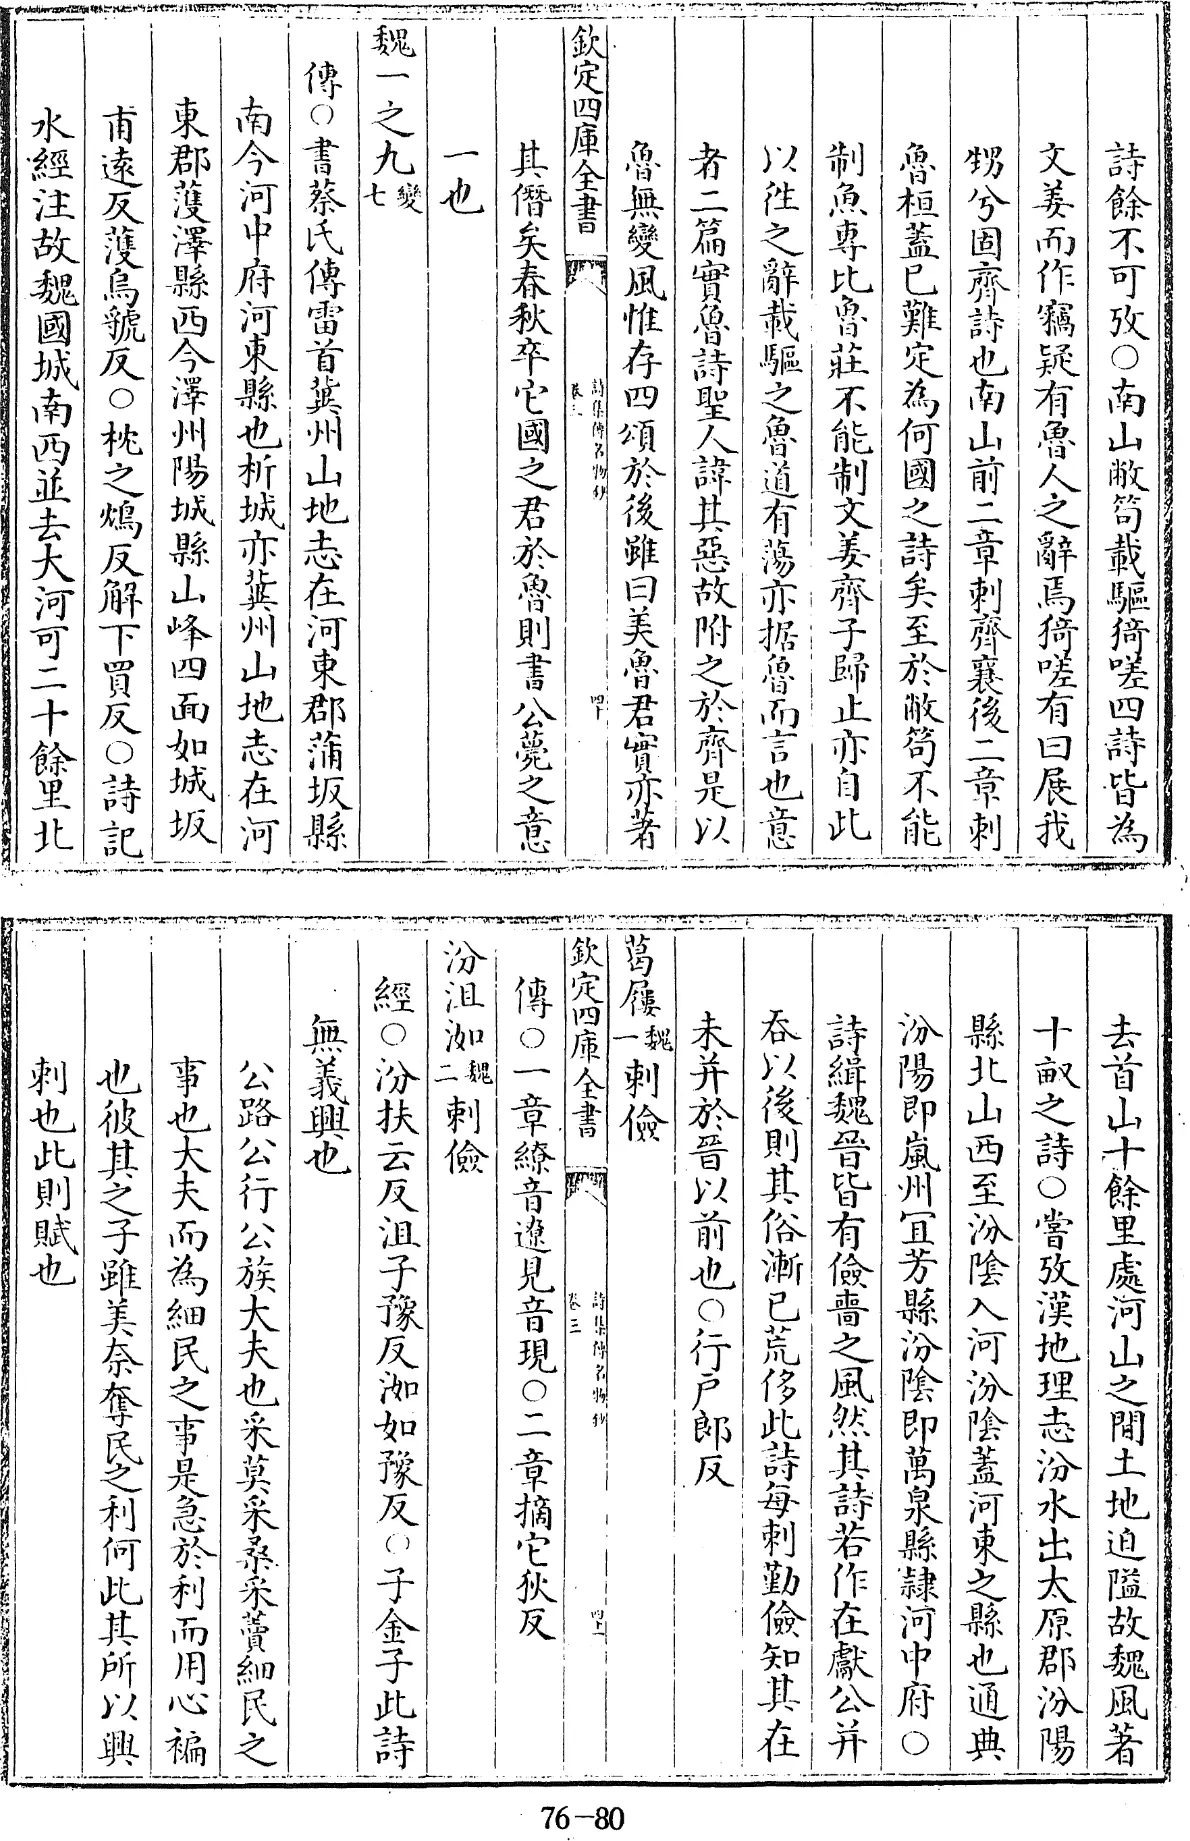 詩餘不可攷○南山敝笱載驅猗嗟四詩皆為
文姜而作竊疑有魯人之辭焉猗嗟有曰展我
甥兮固齊詩也南山前二章刺齊襄後二章刺
魯桓蓋已難定為何國之詩矣至於敝笱不能
制魚專比魯莊不能制文姜齊子歸止亦自此
以徃之辭載驅之魯道有蕩亦据魯而言也意
者二篇實魯詩聖人諱其惡故附之於齊是以
魯無變風惟存四頌於後雖曰美魯君實亦著
欽定四庫全書
詩集傳名物鈔
卷三
四十
其僭矣春秋卒它國之君於魯則書公薨之意
一也
魏一之九變七
傳○書蔡氏傳雷首冀州山地志在河東郡蒲坂縣
南今河中府河東縣也析城亦冀州山地志在河
東郡濩澤縣西今澤州陽城縣山峰四面如城坂
甫逺反濩烏虢反○枕之鴆反解下買反○詩記
水經注故魏國城南西並去大河可二十餘里北
去首山十餘里處河山之間土地迫隘故魏風著
十畝之詩○嘗攷漢地理志汾水出太原郡汾陽
縣北山西至汾陰入河汾陰蓋河東之縣也通典
汾陽即嵐州宜芳縣汾陰即萬泉縣隸河中府○
詩緝魏晉皆有儉嗇之風然其詩若作在獻公并
吞以後則其俗漸已荒侈此詩每刺勤儉知其在
未并於晉以前也○行户郎反
葛屨魏一刺儉
欽定四庫全書
詩集傳名物鈔
卷三
四十一
傳○一章繚音遼見音現○二章摘它狄反
汾沮洳魏二刺儉
經○汾扶云反沮子豫反洳如豫反○子金子此詩
無義興也
公路公行公族大夫也采莫采桑采藚細民之
事也大夫而為細民之事是急於利而用心褊
也彼其之子雖美奈奪民之利何此其所以興
刺也此則賦也
76-80